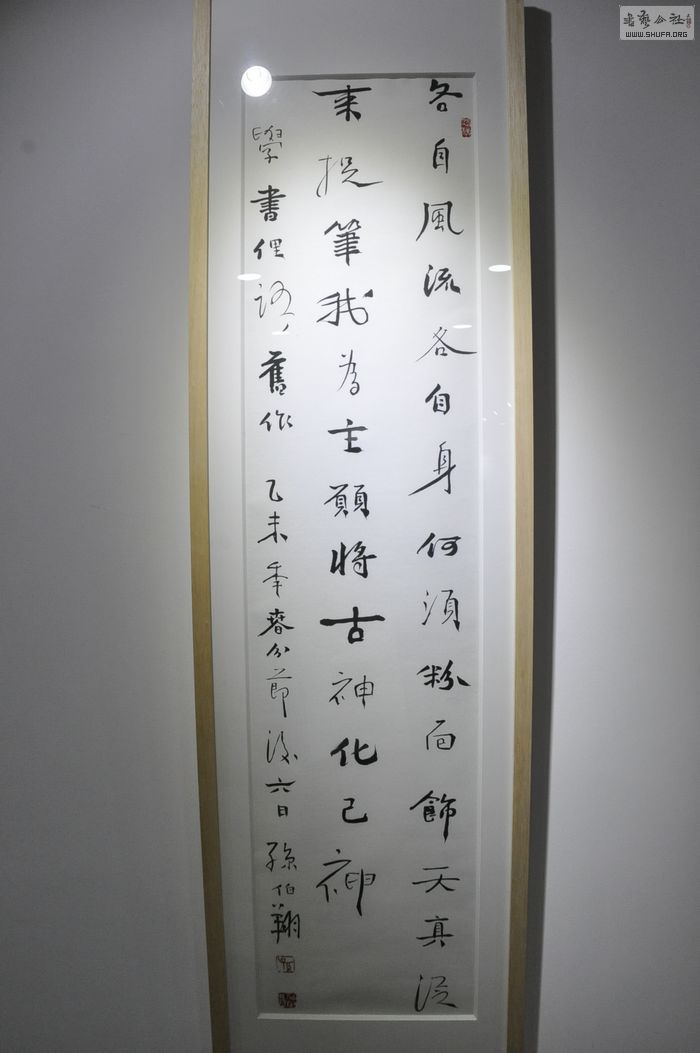 各自風流各自身何須粉面飾天真從
來捉筆我為主願將古神化己神
學書俚語舊作 乙未年春分節後六日 孫伯翔
書藝公社
WWW.SHUFA.ORG